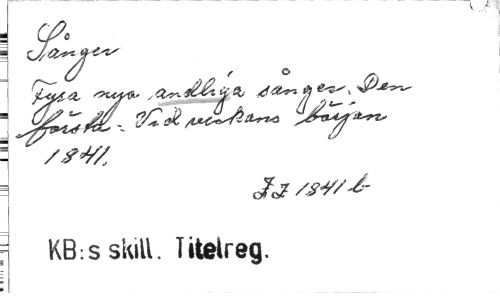 Sånger
Fyra nya andliga sånger. Den
första: Vid veckans början
1841.
1841 b
KB:s skill. Titelreg.